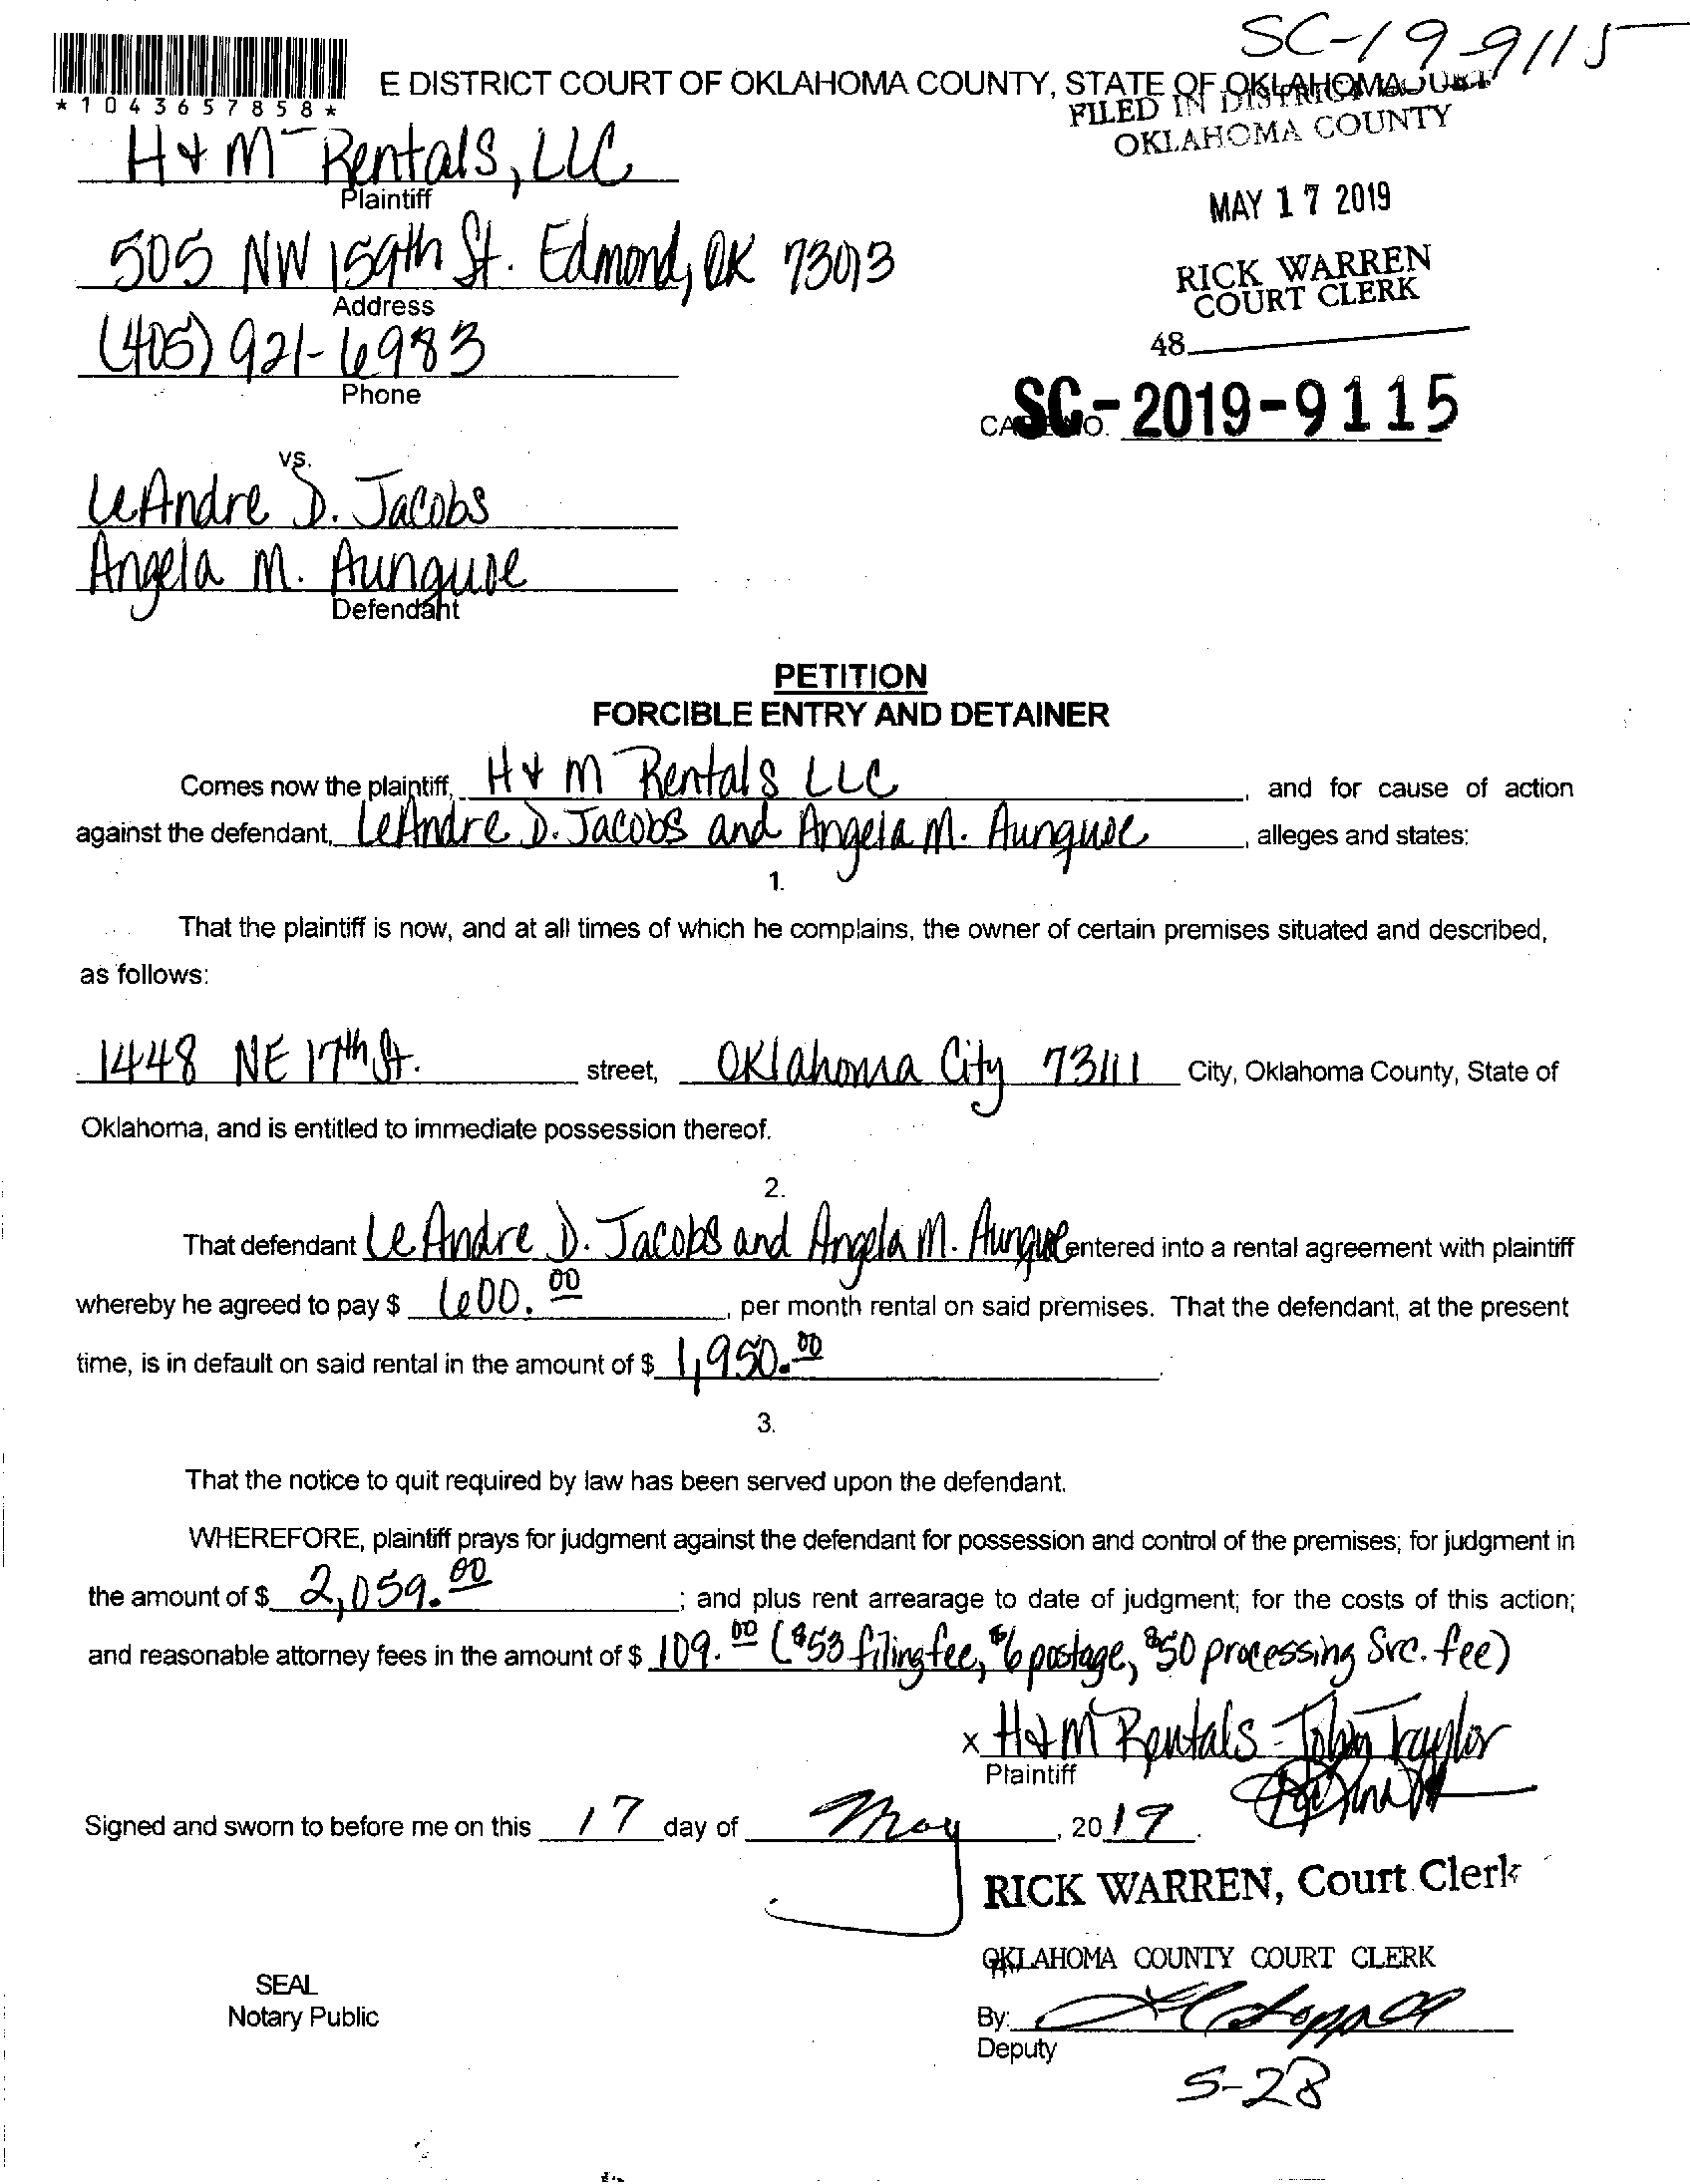 SC-19-9115
E DISTRICT COURT OF OKLAHOMA COUNTY, STATE OF OKLAHOMA
*1043657858*
FILED IN DISTRICT COURT
OKLAHOMA COUNTY
H & M Rentals, LLC
Plaintiff
MAY 17 2019
505 NW 159th St. Edmond, OK 73013
Address
RICK WARREN
COURT CLERK
(405) 921-6983
Phone
48
SC-2019-9115
vs.
LeAndre D. Jacobs
Angela M.
Defendant
PETITION
FORCIBLE ENTRY AND DETAINER
Comes now the plaintiff, H & M Rentals LLC, and for cause of action
against the defendant, LeAndre D. Jacobs and Angela M. , alleges and states:
1.
That the plaintiff is now, and at all times of which he complains, the owner of certain premises situated and described,
as follows:
1448 NE 17th St. street, Oklahoma City 73111 City, Oklahoma County, State of
Oklahoma, and is entitled to immediate possession thereof.
2.
That defendant LeAndre D. Jacobs and Angela M. entered into a rental agreement with plaintiff
whereby he agreed to pay $ 600.00, per month rental on said premises. That the defendant, at the present
time, is in default on said rental in the amount of $ 1,950.00.
3.
That the notice to quit required by law has been served upon the defendant.
WHEREFORE, plaintiff prays for judgment against the defendant for possession and control of the premises; for judgment in
the amount of $ 2,059.00; and plus rent arrearage to date of judgment; for the costs of this action;
and reasonable attorney fees in the amount of $ 109.00 ($53 filing fee, $6 postage, $50 processing Src. fee)
x H & M Rentals - John Taylor
Plaintiff
Signed and sworn to before me on this 17 day of May, 2019.
RICK WARREN, Court Clerk
OKLAHOMA COUNTY COURT CLERK
SEAL
Notary Public
By:
Deputy
5-28